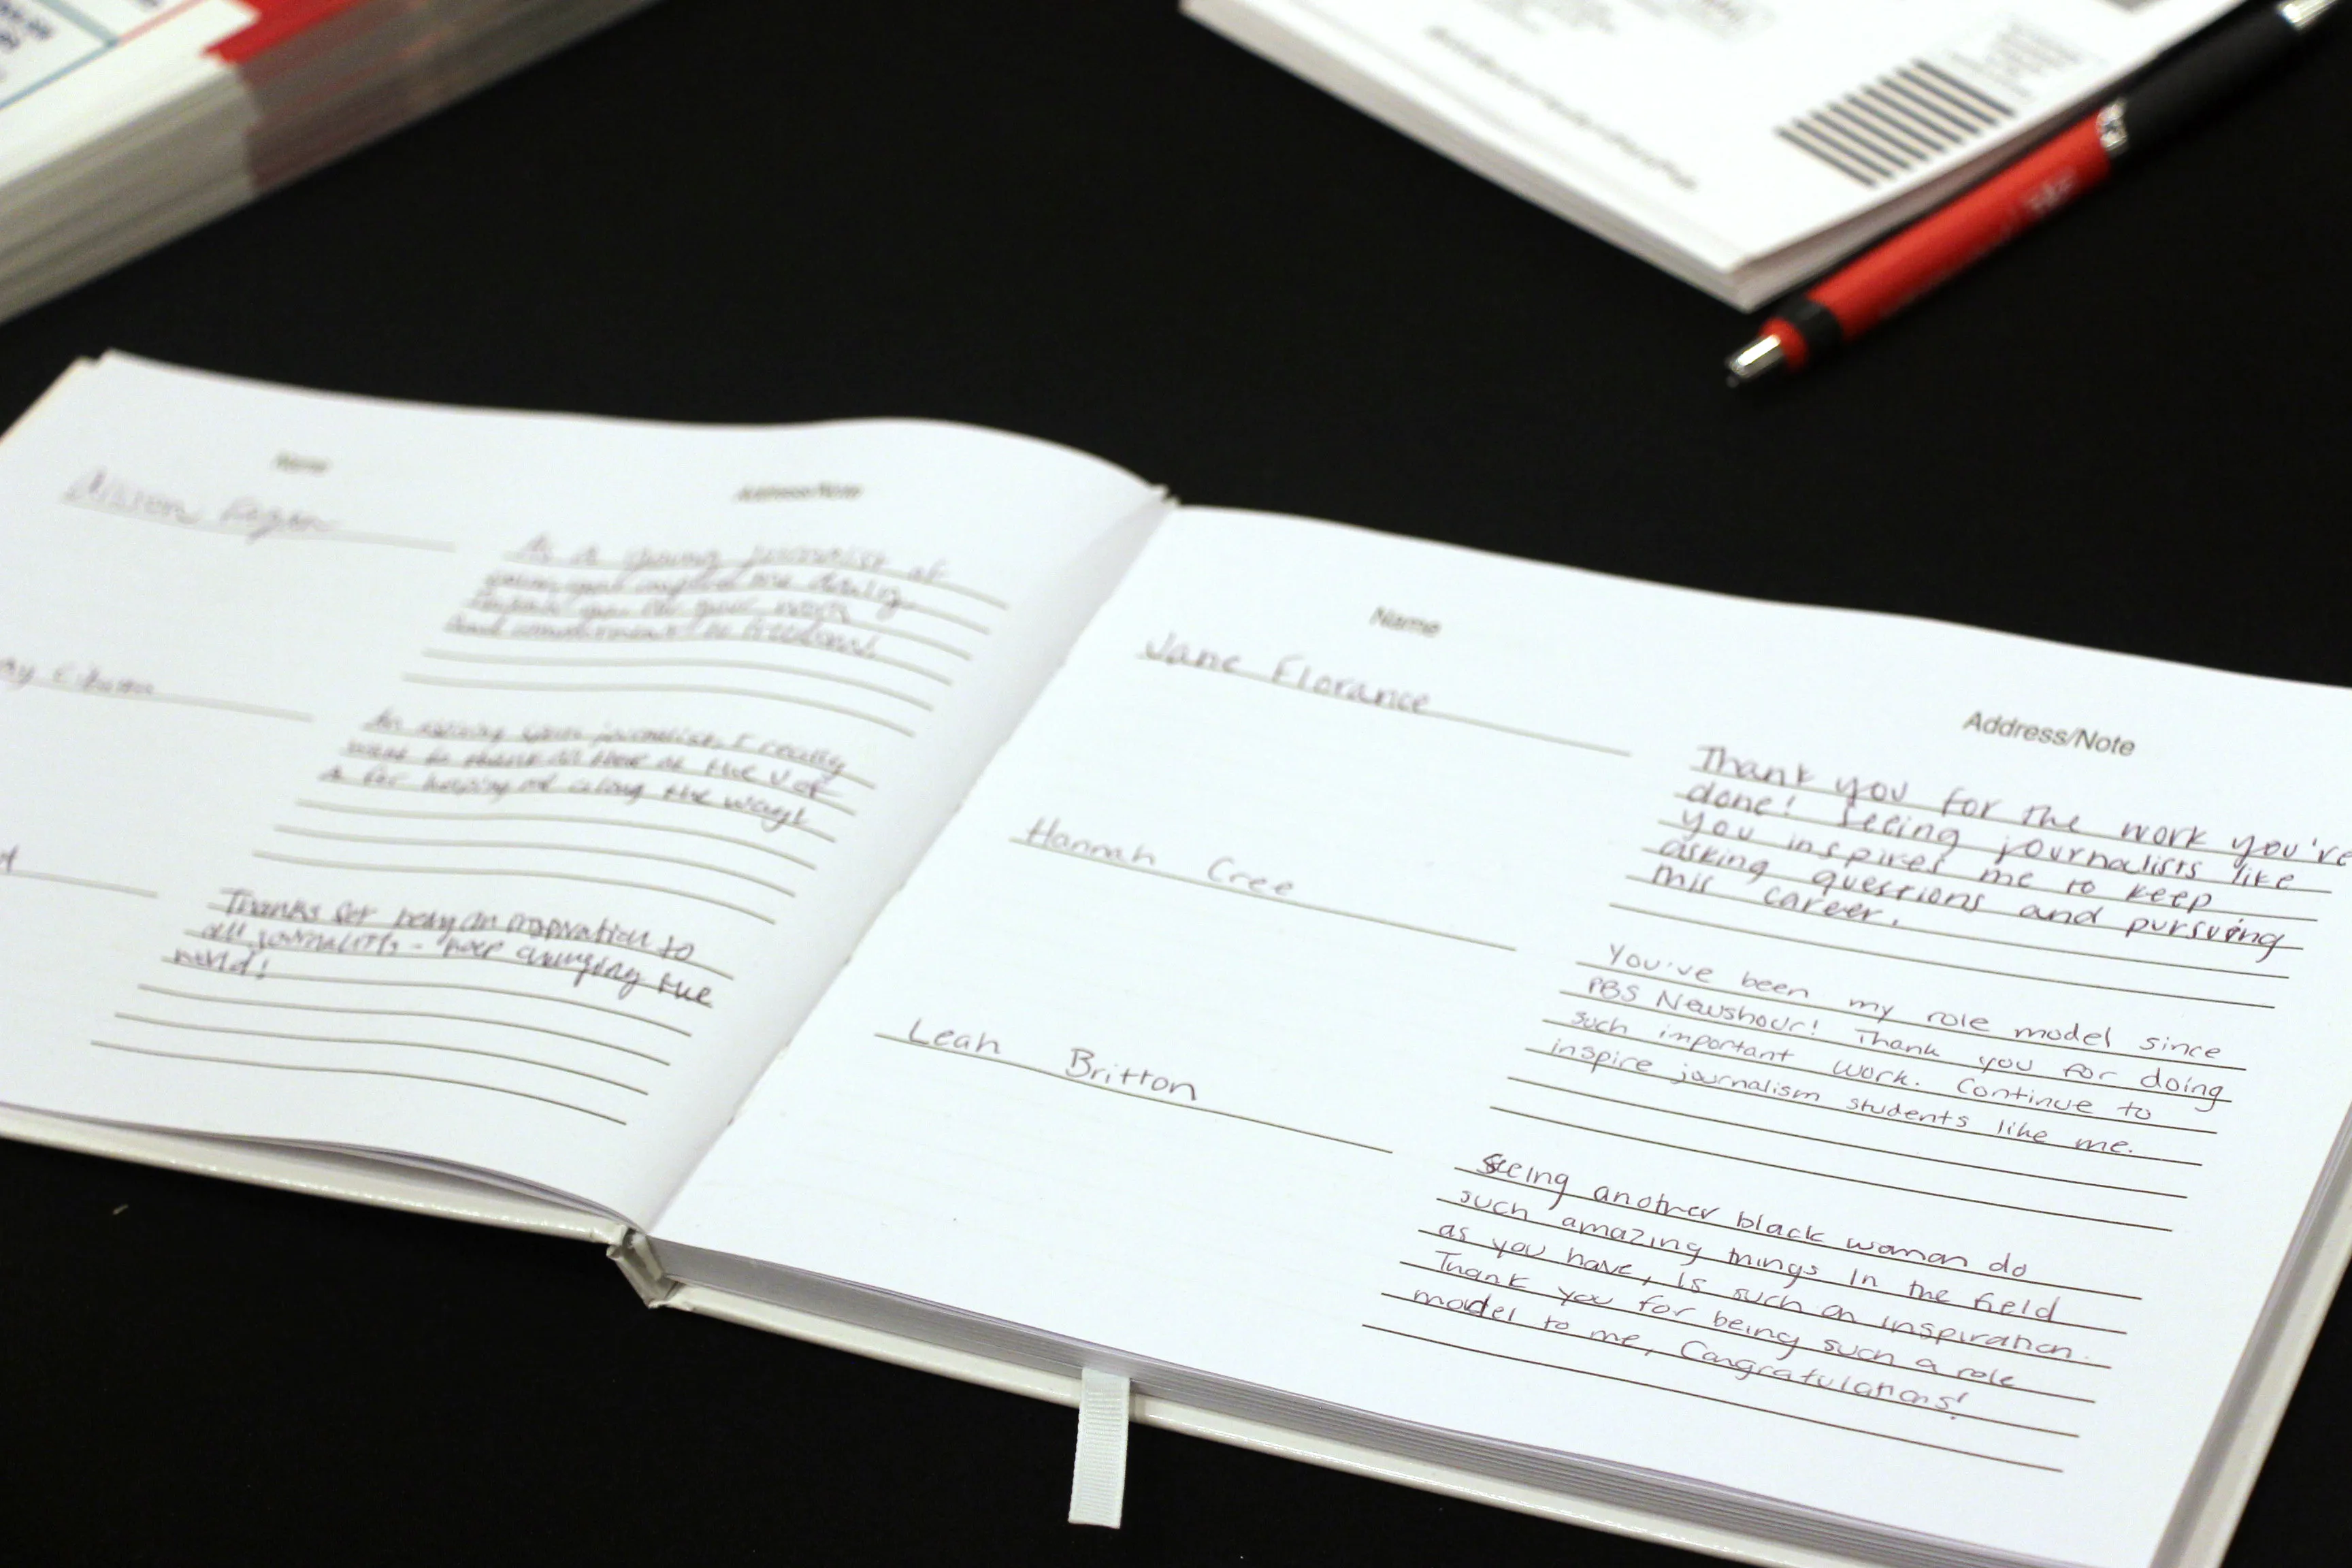 Name
Address/Note
As a young journalist at
daily.
for your work
and commitment to freedom!
An aspiring journalist, I really
want to thank all those at the U of
A for helping me along the way!
Thanks for being an inspiration to
all journalists - keep changing the
world!
Name
Address/Note
Jane Florance
Thank you for the work you've
done! Seeing journalists like
you inspires me to keep
asking questions and pursuing
this career.
Hannah Cree
You've been my role model since
PBS Newshour! Thank you for doing
such important work. Continue to
inspire journalism students like me.
Leah Britton
Seeing another black woman do
such amazing things in the field
as you have, is such an inspiration.
Thank you for being such a role
model to me, Congratulations!